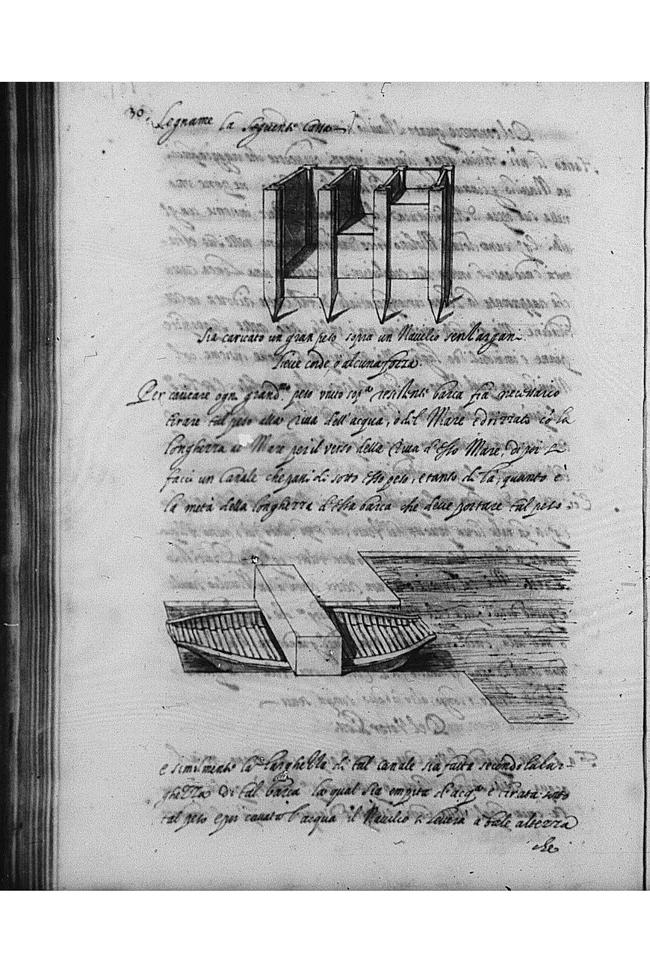 30.
Legname la seguente cassa
Sia caricato un gran peso sopra un Navilio senz'argan
lieve corde ò alcuna forza.
Per caricare ogni grand.mo peso unito sop.a resistente barca fia necessario
tirare tal peso alla riva dell'acqua, ò del Mare e drizzato cò la
longhezza al Mare per il verso della riva d'esso Mare, di poi si
facci un Canale che passi di sotto esso peso, e tanto di la, quanto è
la metà della longhezza d'essa barca che deve portare tal peso
e similmente la larghezza di tal canale sia fatta secondo la lar-
ghezza di tal barca la qual sia empita d'acq.a e tirata sotto
tal peso e poi cavato l'acqua il Navilio si levarà a tale altezza
che